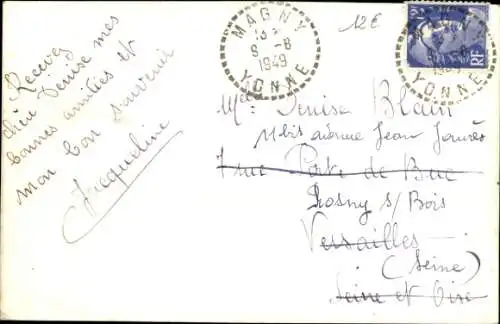 Recevez
chère Denise mes
bonnes amitiés et
mon bon souvenir
Jacqueline
MAGNY
9 -8
1949
YONNE
12€
RF
MAGNY
1949
YONNE
Melle Denise Blain
11bis avenue Jean Jaurès
7 rue Porte de Buc
Rosny s/ Bois
Versailles
(Seine)
Seine et Oise